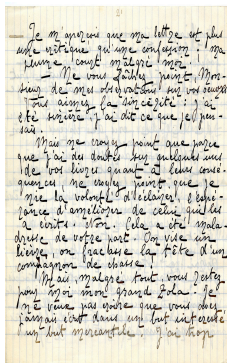 Je m'aperçois que ma lettre est plus
une critique qu'une confession. ma
plume court malgré moi.
— Ne vous fâchez point, Mon-
sieur de mes observations sur vos œuvres
Vous aimez la sincérité : j'ai
été sincère, j'ai dit ce que je pen-
sais.
Mais ne croyez point que parce
que j'ai des doutes sur quelques uns
de vos livres quant à leurs consé-
quences, ne croyez point, que je
nie la volonté d'éclairer, l'espé-
rance d'améliorer de celui qui les
a écrits. Non. Cela a été mala-
dresse de votre part. On vise un
lièvre, on fracasse la tête d'un
compagnon de chasse !
Mais, malgré tout, vous restez
pour moi mon grand Zola. Je
ne veux pas croire que vous ayez
jamais écrit dans un but intéressé
un but mercantile. J'ai trop